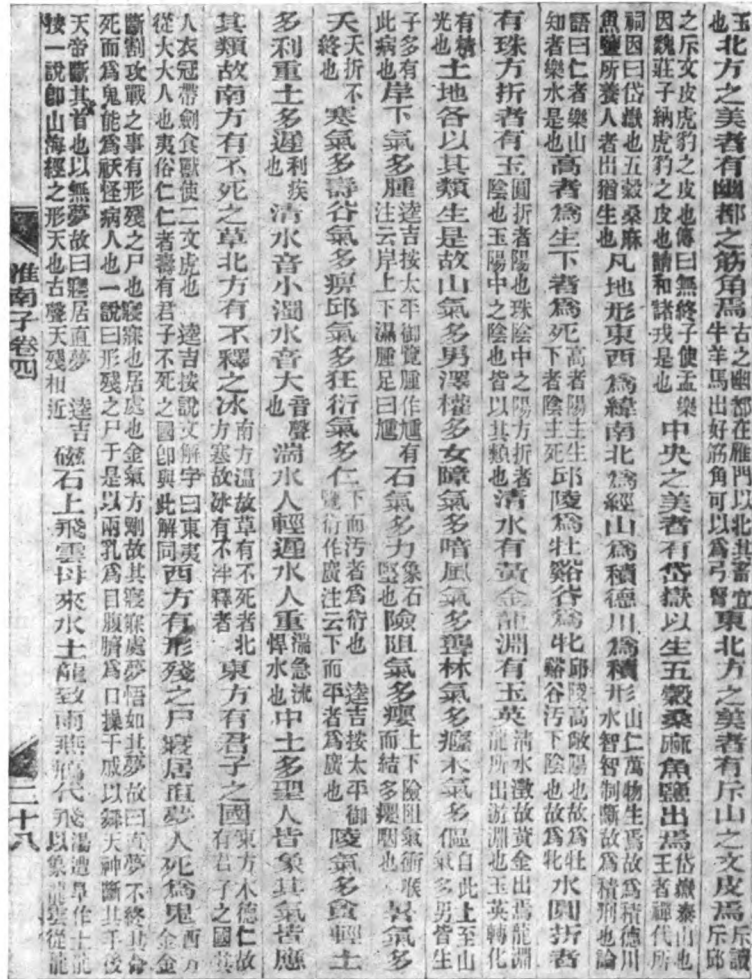 玉也北方之美者有幽都之筋角焉古之幽都在雁門以北其畜宜牛羊馬出好筋角可以爲弓弩東北方之美者有斥山之文皮焉斥讀斥邱
之斥文皮虎豹之皮也傳曰無終子使孟樂因魏莊子納虎豹之皮也請和諸戎是也中央之美者有岱嶽以生五穀桑麻魚鹽出焉岱嶽泰山也王者禪代所
祠因曰岱嶽也五穀桑麻魚鹽所養人者出猶生也凡地形東西爲緯南北爲經山爲積德川爲積形山仁萬物生焉故爲積德川水智智制斷故爲積刑也論
語曰仁者樂山知者樂水是也高者爲生下者爲死高者陽主生下者陰主死邱陵爲牡谿谷爲牝邱陵高敞陽也故爲牡谿谷污下陰也故爲牝水圓折者
有珠方折者有玉圓折者陽也珠陰中之陽方折者陰也玉陽中之陰也皆以其類也清水有黃金龍淵有玉英清水澂故黃金出焉龍淵龍所出游淵也玉英轉化
有精光也土地各以其類生是故山氣多男澤權多女障氣多喑風氣多聾林氣多癃木氣多傴自此上至山氣多男皆生
子多有此病也岸下氣多腫逵吉按太平御覽腫作尰有注云岸上下濕腫足曰尰石氣多力象石堅也險阻氣多癭上下險阻氣衝喉而結多癭咽也暑氣多
夭夭折不終也寒氣多壽谷氣多痹邱氣多狂衍氣多仁下而污者爲衍也逵吉按太平御覽衍作廣注云下而平者爲廣也陵氣多貪輕土
多利重土多遲利疾也清水音小濁水音大音聲也湍水人輕遲水人重湍急流悍水也中土多聖人皆象其氣皆應
其類故南方有不死之草北方有不釋之冰南方溫故草有不死者北方寒故冰有不泮釋者東方有君子之國東方木德仁故有君子之國其
人衣冠帶劍食獸使二文虎也逵吉按說文解字曰東夷從大大人也夷俗仁仁者壽有君子不死之國卽與此解同西方有形殘之尸寢居直夢人死爲鬼西方金金
斷割攻戰之事有形殘之尸也寢寐也居處也金氣方剛故其寢寐處夢悟如其夢故曰直夢不終其命死而爲鬼能爲祅怪病人也一說曰形殘之尸于是以兩乳爲目腹臍爲口操干戚以舞天神斷其手後
天帝斷其首也以無夢故曰寢居直夢逵吉按一說卽山海經之形天也古聲天殘相近磁石上飛雲母來水土龍致雨燕鴈代飛湯遭旱作土龍以象龍雲從龍
淮南子卷四
二十八